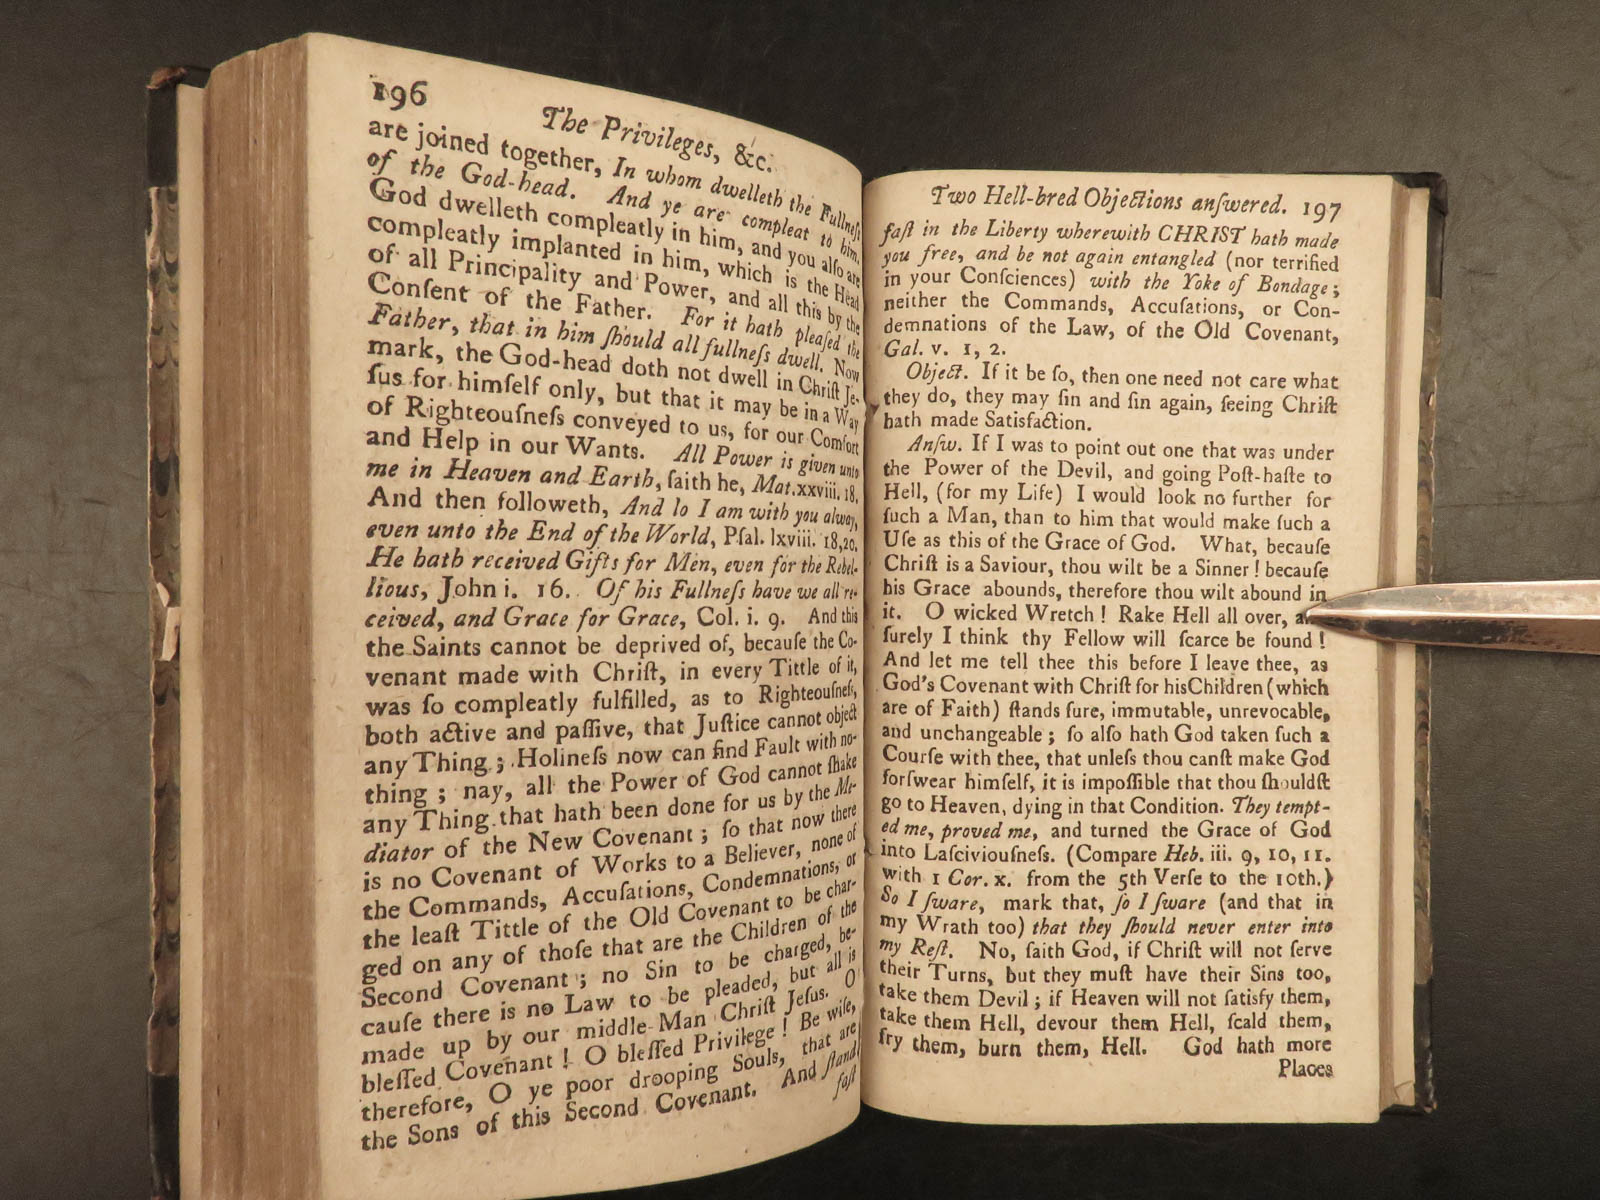 196
The Privileges, &c.
are joined together, In whom dwelleth the Fullneſs
of the God-head. And ye are compleat to him,
God dwelleth compleatly in him, and you alſo are
compleatly implanted in him, which is the Head
of all Principality and Power, and all this by the
Conſent of the Father. For it hath pleaſed the
Father, that in him ſhould all fullneſs dwell. Now
mark, the God-head doth not dwell in Chriſt Je-
ſus for himſelf only, but that it may be in a Way
of Righteouſneſs conveyed to us, for our Comfort
and Help in our Wants. All Power is given unto
me in Heaven and Earth, ſaith he, Mat. xxviii. 18.
And then followeth, And lo I am with you alway,
even unto the End of the World, Pſal. lxviii. 18,20.
He hath received Gifts for Men, even for the Rebel-
lious, John i. 16. Of his Fullneſs have we all re-
ceived, and Grace for Grace, Col. i. 9. And this
the Saints cannot be deprived of, becauſe the Co-
venant made with Chriſt, in every Tittle of it,
was ſo compleatly fulfilled, as to Righteouſneſs,
both active and paſſive, that Juſtice cannot object
any Thing; Holineſs now can find Fault with no-
thing; nay, all the Power of God cannot ſhake
any Thing that hath been done for us by the Me-
diator of the New Covenant; ſo that now there
is no Covenant of Works to a Believer, none of
the Commands, Accuſations, Condemnations, or
the leaſt Tittle of the Old Covenant to be char-
ged on any of thoſe that are the Children of the
Second Covenant; no Sin to be charged, be-
cauſe there is no Law to be pleaded, but all is
made up by our middle-Man Chriſt Jeſus. O
bleſſed Covenant! O bleſſed Privilege! Be wiſe,
therefore, O ye poor drooping Souls, that are
the Sons of this Second Covenant. And ſtand
faſt
Two Hell-bred Objections anſwered. 197
faſt in the Liberty wherewith CHRIST hath made
you free, and be not again entangled (nor terrified
in your Conſciences) with the Yoke of Bondage;
neither the Commands, Accuſations, or Con-
demnations of the Law, of the Old Covenant,
Gal. v. 1, 2.
Object. If it be ſo, then one need not care what
they do, they may ſin and ſin again, ſeeing Chriſt
hath made Satisfaction.
Anſw. If I was to point out one that was under
the Power of the Devil, and going Poſt-haſte to
Hell, (for my Life) I would look no further for
ſuch a Man, than to him that would make ſuch a
Uſe as this of the Grace of God. What, becauſe
Chriſt is a Saviour, thou wilt be a Sinner! becauſe
his Grace abounds, therefore thou wilt abound in
it. O wicked Wretch! Rake Hell all over,
ſurely I think thy Fellow will ſcarce be found!
And let me tell thee this before I leave thee, as
God's Covenant with Chriſt for his Children (which
are of Faith) ſtands ſure, immutable, unrevocable,
and unchangeable; ſo alſo hath God taken ſuch a
Courſe with thee, that unleſs thou canſt make God
forſwear himſelf, it is impoſſible that thou ſhouldſt
go to Heaven, dying in that Condition. They tempt-
ed me, proved me, and turned the Grace of God
into Laſciviouſneſs. (Compare Heb. iii. 9, 10, 11.
with 1 Cor. x. from the 5th Verſe to the 10th.)
So I ſware, mark that, ſo I ſware (and that in
my Wrath too) that they ſhould never enter into
my Reſt. No, ſaith God, if Chriſt will not ſerve
their Turns, but they muſt have their Sins too,
take them Devil; if Heaven will not ſatisfy them,
take them Hell, devour them Hell, ſcald them,
fry them, burn them, Hell. God hath more
Places